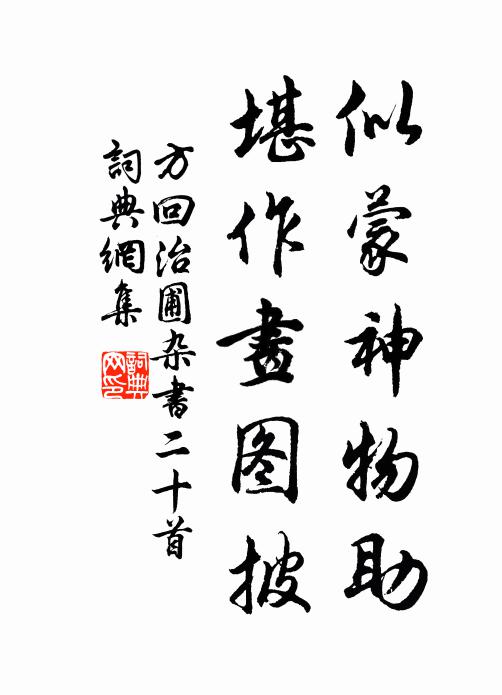 似蒙神物助
堪作畫图披
方回治圃杂書二十首
詞典網集
詞典网印